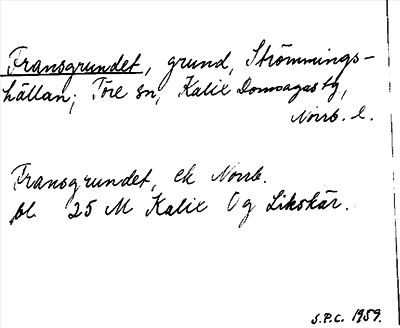 Fransgrundet, grund, Strömmings-
hällan; Töre sn, Kalix Domsagas tg,
Norrb. l.
Fransgrundet, ek Norrb.
bl. 25 M Kalix Og Likskär.
S.P.C. 1959.